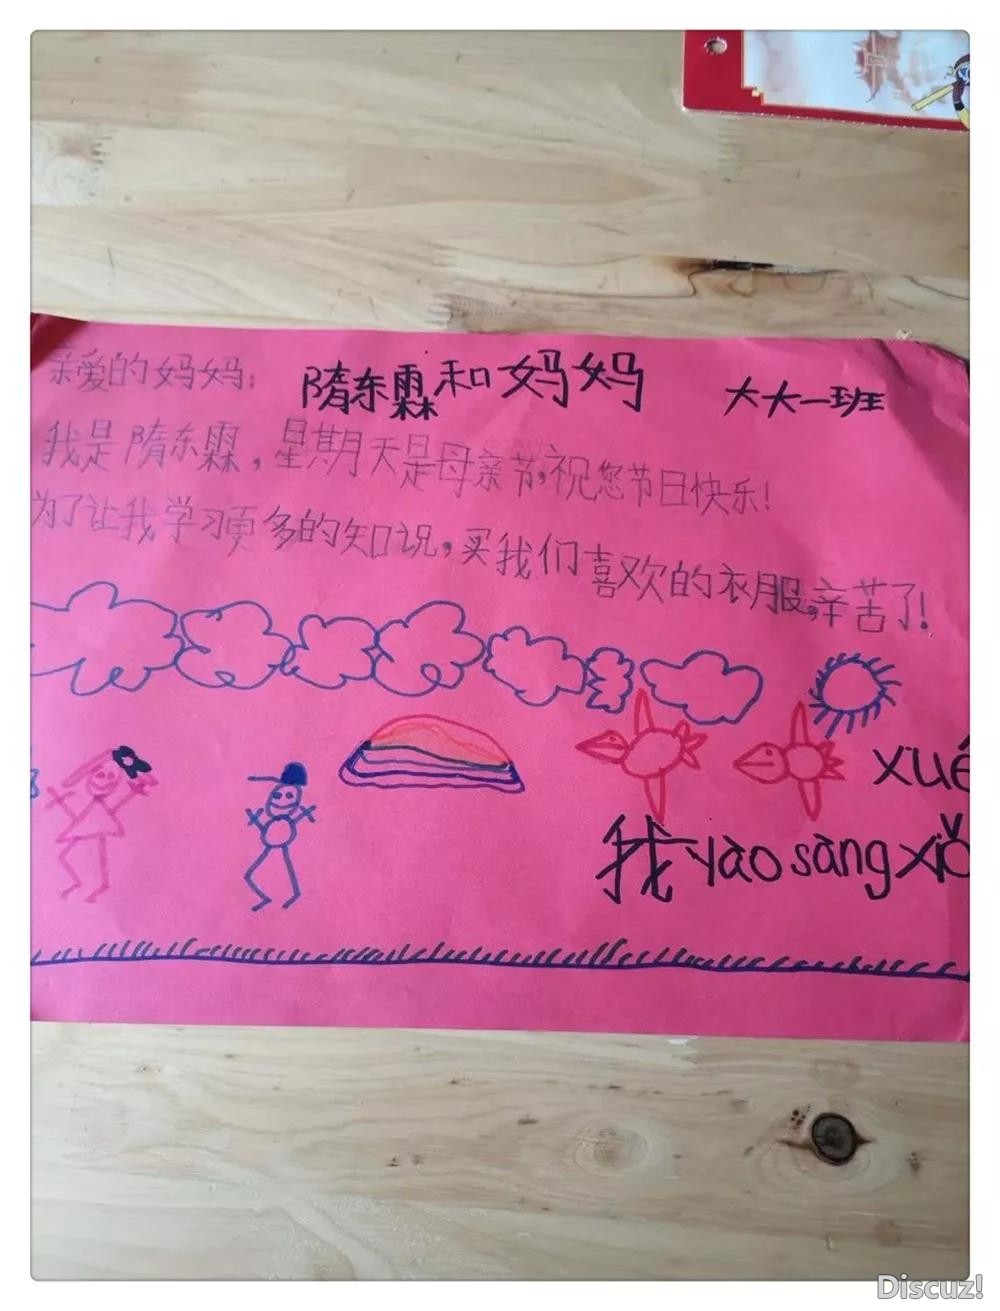 亲爱的妈妈：
隋东霖和妈妈
大大一班
我是隋东霖，星期天是母亲节，祝您节日快乐！
为了让我学习更多的知识，买我们喜欢的衣服，辛苦了！
xué
我yào sàng xiǎ
Discuz!